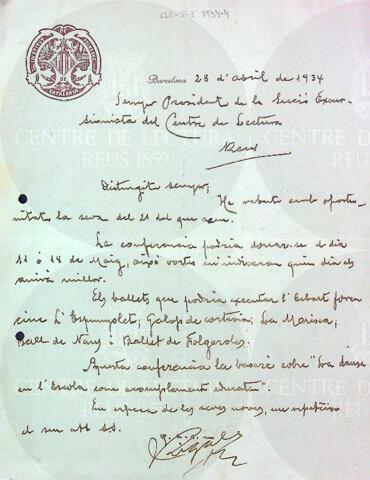 CLE-5-5 1934-4
Barcelona 28 d'abril de 1934
Senyor President de la Secció Excur-
sionista del Centre de Lectura
Reus
Distingit senyor;
He rebut amb oportu-
nitat la seva del 21 del que som.
La conferència podria donar-se el dia
11 ó 18 de Maig, això vostès indicaran quin dia els
aniria millor.
Els ballets que podria executar l'Esbart foren
cinc L'Espunyolet; Galop de cortesia; La Marisca;
Ball de Nans i Ballet de Folgaroles.
Aquesta conferència la basaré sobre "La dansa
en l'Escola com acomplement educatiu".
En espera de les seves noves, em repeteixo
el seu att. s.s.
q. e. s. m.
CENTRE DE LECTURA
REUS 1859
CENTRE DE LECTURA
REUS 1859